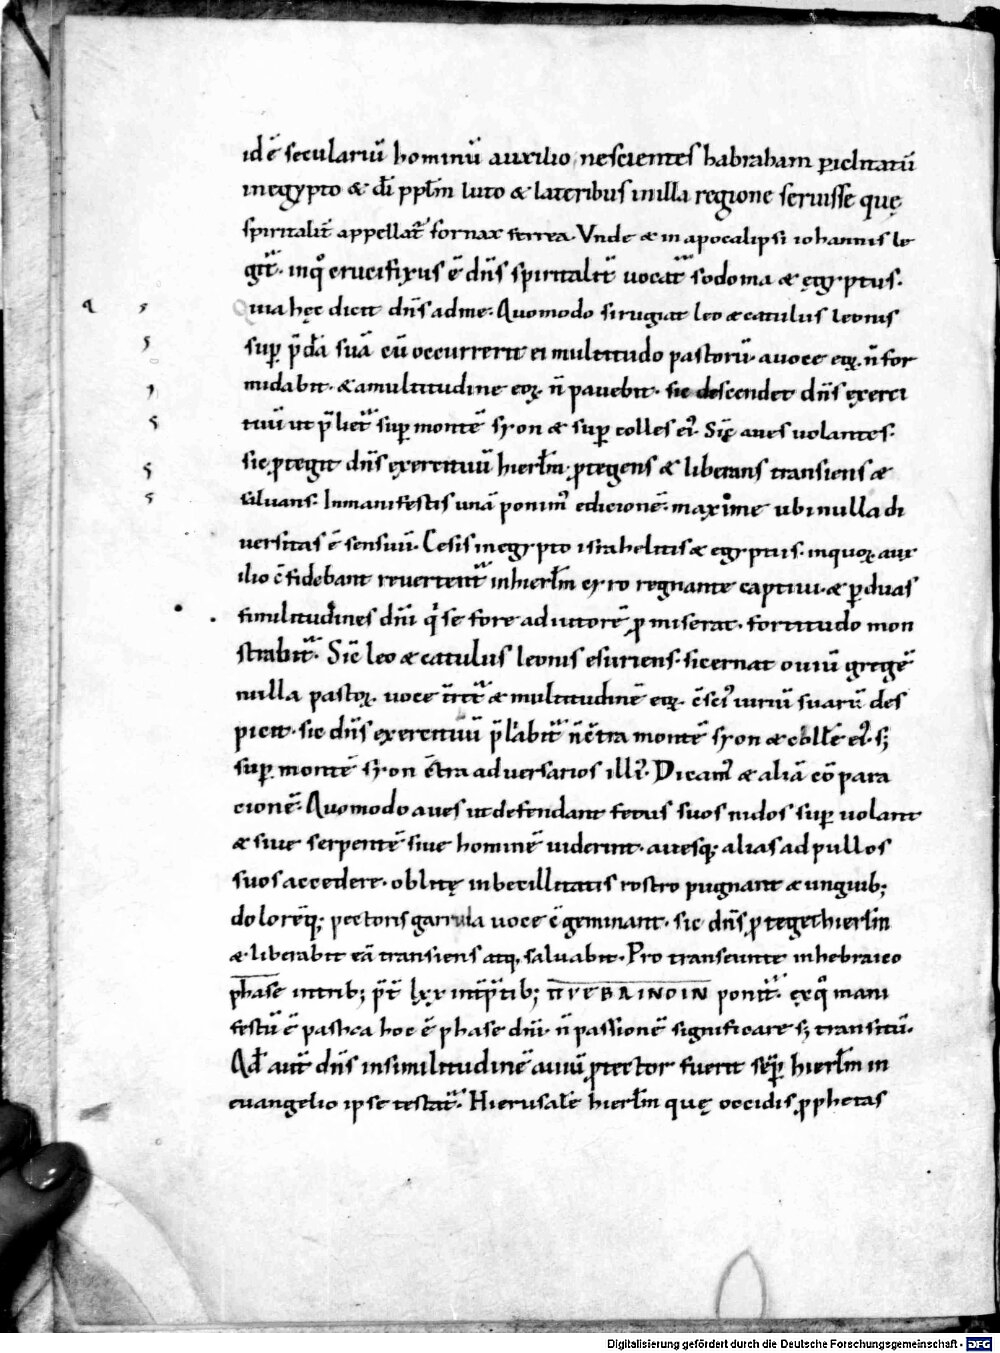 id ē seculariū hominū auxilio nescientes habraham periclitatū
in egypto & dī pplm̄ luto & lateribus in illa regione seruisse quę
spiritalit̄ appellat̄ fornax ferrea. Vnde & in apocalipsi iohannis le
git̄. inq̊ crucifixus ē dn̄s spiritalit̄ uocat̄ sodoma & ęgyptus.
Quia hęc dicit dn̄s ad me. Quomodo si rugiat leo & catulus leonis
sup p̄dā suā cū occurrerit ei multitudo pastorū. a uoce eoꝝ n̄ for
midabit. & a multitudine eoꝝ n̄ pauebit. sic descendet dn̄s exerci
tuū ut p̄liet̄ sup montē syon & sup colles eī. Sic̄ aues uolantes.
sic ꝓtegit dn̄s exercituū hierłm ꝓtegens & liberans transiens &
saluans. In manifestis unā ponim̄ edicionē. maxime ubi nulla di
uersitas ē sensuū. Cesis in egypto israhelitis & egyptus. in quoꝝ aux
ilio c̄fidebant reuertent̄ in hierłm cyro regnante captiui. & ꝑ duas
similitudines dn̄i q̊ se fore adiutorē ꝓmiserat. fortitudo mon
strabit̄. Sic̄ leo & catulus leonis esuriens. si cernat ouiū gregē
nulla pastoꝝ uoce t̄ret̄ & multitudinē eoꝝ c̄sci uiriū suarū des
picit. sic dn̄s exercituū p̄liabit̄ n̄ c̄tra montē syon & collē eī. sꝫ
sup montē syon c̄tra aduersarios illī. Dicam̄ & aliā cōpara
cionē. Quomodo aues ut defendant fetus suos nidos sup uolant
& siue serpentē siue hominē uiderint. auesq; alias ad pullos
suos accedere. oblitę inbecillitatis rostro pugnant & unguib;
dolorēq; pectoris garrula uoce c̄geminant. sic dn̄s ꝓteget hierłm
& liberabit eā transiens atq; saluabit. Pro transeunte in hebraico
phase
festū ē pascha hoc ē phase dn̄i. n̄ passionē significare sꝫ transitū.
Qd̄ aut̄ dn̄s in similitudinē auiū ꝓtector fuerit sep̄ hierłm in
euangelio ipse testat̄. Hierusalē hierłm quę occidis ꝓphetas